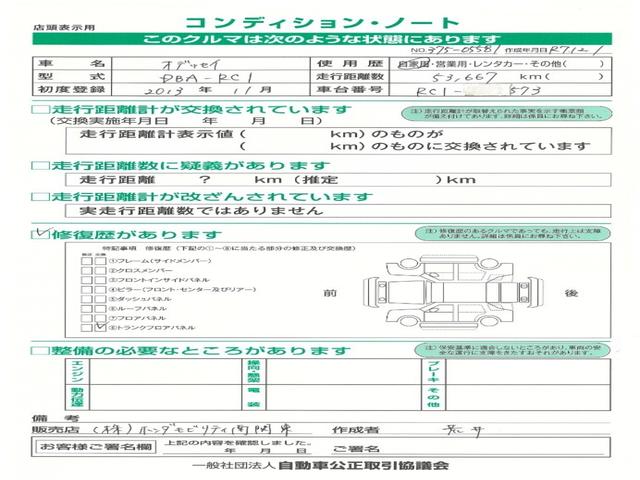 店頭表示用
コンディション・ノート
このクルマは次のような状態にあります
NO.375-05581 作成年月日 R7.12.1
車名 オデッセイ 使用歴 自家用・営業用・レンタカー・その他( )
型式 DBA-RC1 走行距離数 53,667 km( )
初度登録 2013年 11月 車台番号 RC1- 573
□走行距離計が交換されています
注)走行距離計が取替えられた事実を示す帳票類が備え付けてあります。詳細は係員にお尋ね下さい。
(交換実施年月日 年 月 日)
走行距離計表示値( km)のものが
( km)のものに交換されています
□走行距離数に疑義があります
走行距離 ? km(推定 )km
□走行距離計が改ざんされています
実走行距離数ではありません
□修復歴があります
注)修復歴のあるクルマであっても、走行上は支障ありません。詳細は係員にお尋ね下さい。
特記事項 修復歴(下記の①~⑧に当たる部分の修正及び交換歴)
①フレーム(サイドメンバー)
②クロスメンバー
③フロントインサイドパネル
④ピラー(フロント・センター及びリアー)
⑤ダッシュパネル
⑥ルーフパネル
⑦フロアパネル
⑧トランクフロアパネル
前 後
□整備の必要なところがあります
注)保安基準に適合しないところがあり、車両の安全な運行に支障をきたすおそれがあります。
エンジン 操向・懸架 ブレーキ
動力伝達 電装 その他
備考
販売店 (株)ホンダモビリティ南関東 作成者
お客様ご署名欄 上記の内容を確認しました。
年 月 日
一般社団法人 自動車公正取引協議会